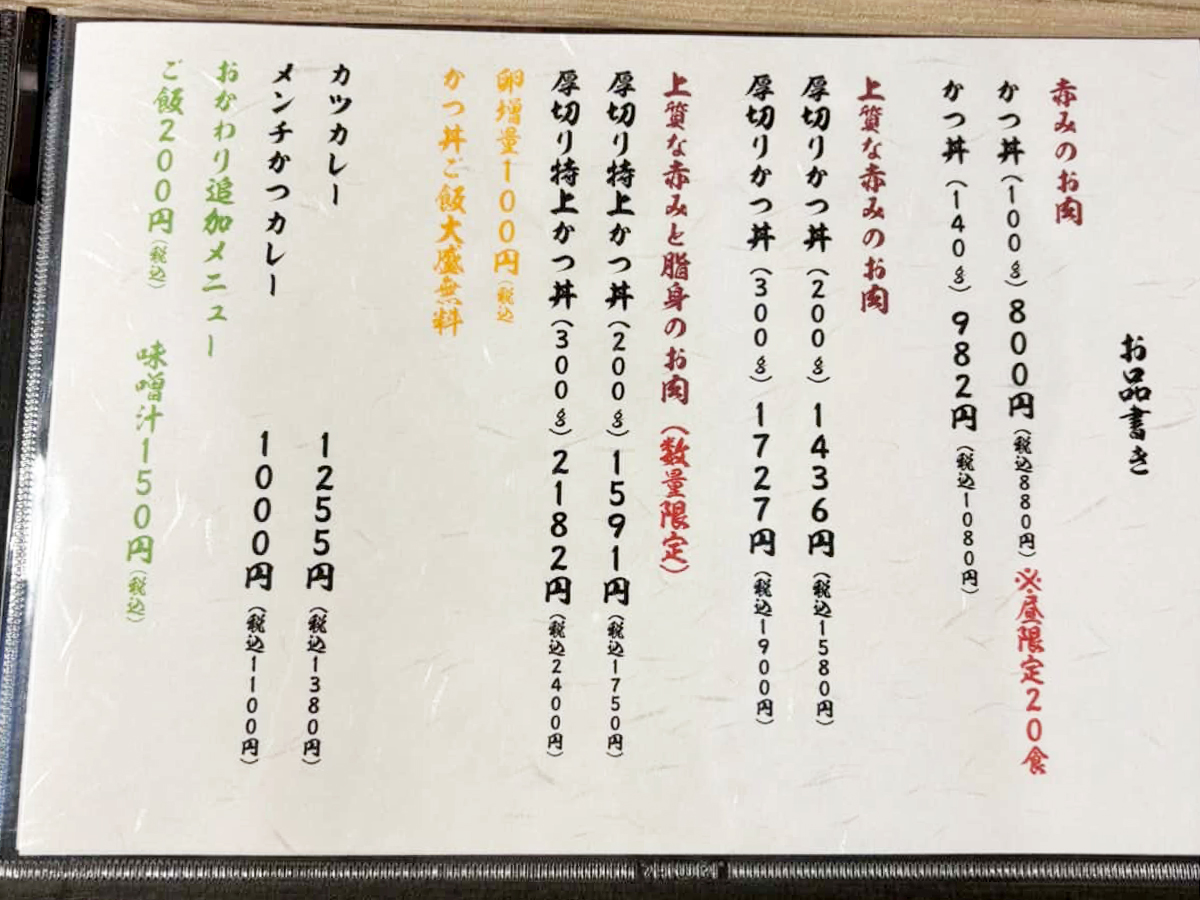 お品書き
赤みのお肉
かつ丼(100g)800円(税込880円)※昼限定20食
かつ丼(140g)982円(税込1080円)
上質な赤みのお肉
厚切りかつ丼(200g)1436円(税込1580円)
厚切りかつ丼(300g)1727円(税込1900円)
上質な赤みと脂身のお肉(数量限定)
厚切り特上かつ丼(200g)1591円(税込1750円)
厚切り特上かつ丼(300g)2182円(税込2400円)
卵増量100円(税込
かつ丼ご飯大盛無料
カツカレー 1255円(税込1380円)
メンチかつカレー 1000円(税込1100円)
おかわり追加メニュー
ご飯200円(税込) 味噌汁150円(税込)